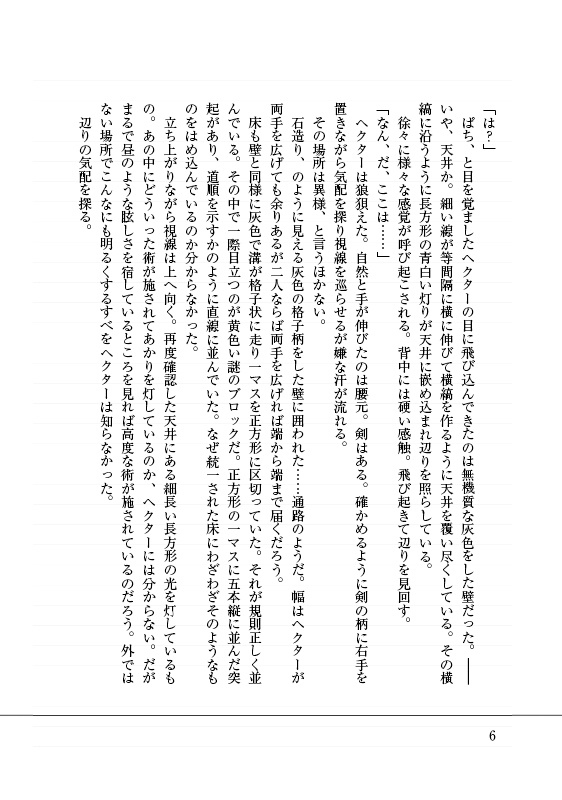 「は？」
　ぱち、と目を覚ましたヘクターの目に飛び込んできたのは無機質な灰色をした壁だった。――
いや、天井か。細い線が等間隔に横に伸びて横縞を作るように天井を覆い尽くしている。その横
縞に沿うように長方形の青白い灯りが天井に嵌め込まれ辺りを照らしている。
　徐々に様々な感覚が呼び起こされる。背中には硬い感触。飛び起きて辺りを見回す。
「なん、だ、ここは……」
　ヘクターは狼狽えた。自然と手が伸びたのは腰元。剣はある。確かめるように剣の柄に右手を
置きながら気配を探り視線を巡らせるが嫌な汗が流れる。
　その場所は異様、と言うほかない。
　石造り、のように見える灰色の格子柄をした壁に囲われた……通路のようだ。幅はヘクターが
両手を広げても余りあるが二人ならば両手を広げれば端から端まで届くだろう。
　床も壁と同様に灰色で溝が格子状に走り一マスを正方形に区切っていた。それが規則正しく並
んでいる。その中で一際目立つのが黄色い謎のブロックだ。正方形の一マスに五本縦に並んだ突
起があり、道順を示すかのように直線に並んでいた。なぜ統一された床にわざわざそのようなも
のをはめ込んでいるのか分からなかった。
　立ち上がりながら視線は上へ向く。再度確認した天井にある細長い長方形の光を灯しているも
の。あの中にどういった術が施されてあかりを灯しているのか、ヘクターには分からない。だが
まるで昼のような眩しさを宿しているところを見れば高度な術が施されているのだろう。外では
ない場所でこんなにも明るくするすべをヘクターは知らなかった。
　辺りの気配を探る。
6